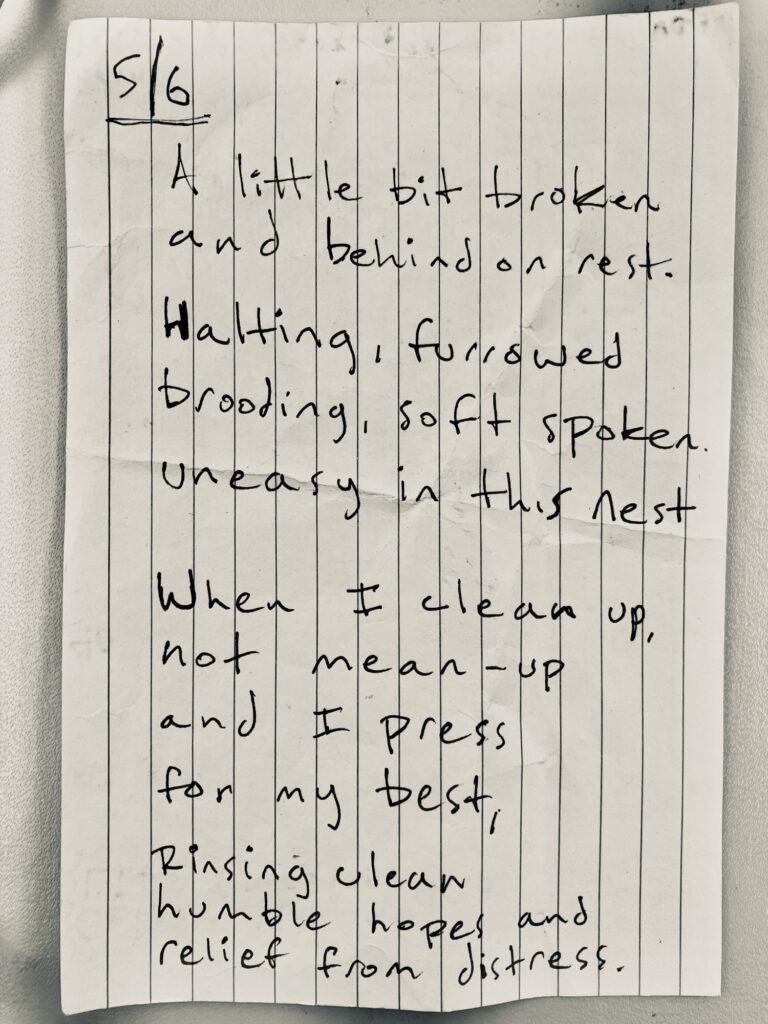 5/6
A little bit broken
and behind on rest.
Halting, furrowed
brooding, soft spoken.
uneasy in this nest
When I clean up,
not mean-up
and I press
for my best,
Rinsing clean
humble hopes and
relief from distress.